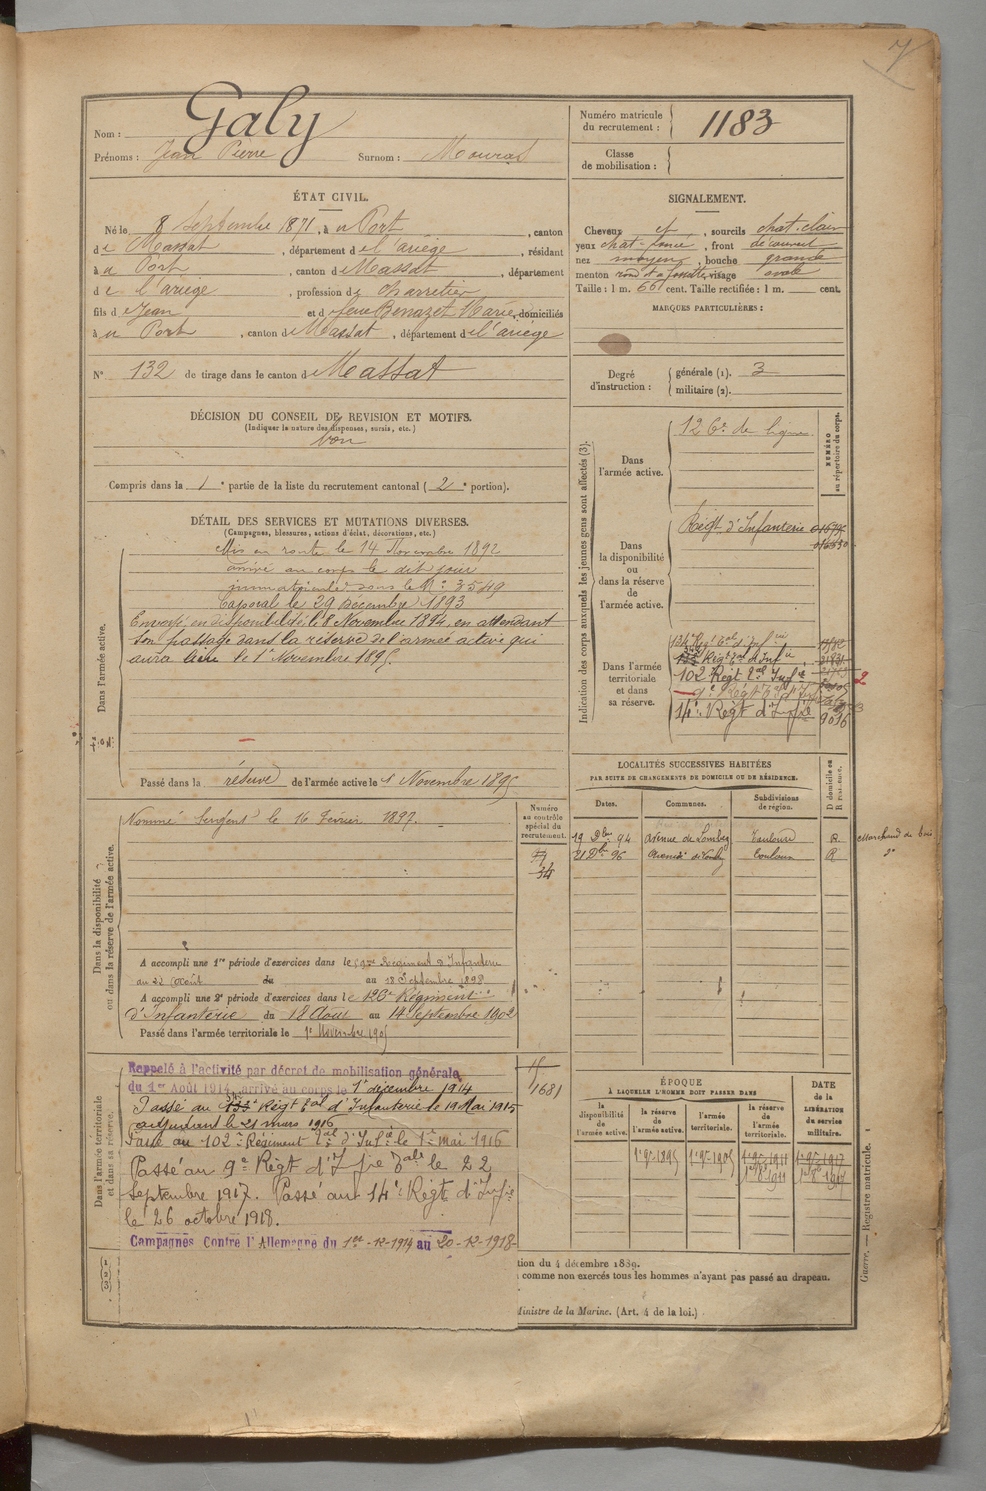 7
Nom : Galy
Prénoms : Jean Pierre Surnom : Mouras
Numéro matricule du recrutement : 1183
Classe de mobilisation :
ÉTAT CIVIL.
Né le 8 Septembre 1871, à u Port, canton
de Massat, département de l'ariège, résidant
à u Port, canton de Massat, département
de l'ariège, profession de charretier
fils de Jean et de feue Benazet Marie, domiciliés
à u Port, canton de Massat, département de l'ariège
N° 132 de tirage dans le canton de Massat
SIGNALEMENT.
Cheveux et, sourcils chat. clair
yeux chat-foncé, front découvert
nez moyen, bouche grande
menton rond et à fossette, visage ovale
Taille : 1 m. 66 cent. Taille rectifiée : 1 m. cent.
MARQUES PARTICULIÈRES :
Degré d'instruction : générale (1). 3
militaire (2).
DÉCISION DU CONSEIL DE REVISION ET MOTIFS.
(Indiquer la nature des dispenses, sursis, etc.)
bon
Compris dans la 1e partie de la liste du recrutement cantonal (2e portion).
DÉTAIL DES SERVICES ET MUTATIONS DIVERSES.
(Campagnes, blessures, actions d'éclat, décorations, etc.)
Dans l'armée active.
Mis en route le 14 Novembre 1892
arrivé au corps le dit jour
immatriculé sous le N° 3549
Caporal le 29 Décembre 1893
Envoyé en disponibilité le 8 Novembre 1894, en attendant
son passage dans la réserve de l'armée active qui
aura lieu le 1er Novembre 1895.
Passé dans la réserve de l'armée active le 1 Novembre 1895
Dans la disponibilité ou dans la réserve de l'armée active.
Nommé Sergent le 16 Fevrier 1897.
A accompli une 1re période d'exercices dans le Régiment d'Infanterie
du 22 Août au 18 Septembre 1898
A accompli une 2e période d'exercices dans le 126e Régiment
d'Infanterie du 18 Aout au 14 Septembre 1902
Passé dans l'armée territoriale le 1er Novembre 1905
Numéro au contrôle spécial du recrutement.
34
Dans l'armée territoriale et dans sa réserve.
Rappelé à l'activité par décret de mobilisation générale
du 1er Août 1914, arrivé au corps le 1er décembre 1914
Passé au Régt Tal d'Infanterie le 19 Mai 1915
adjudant le 21 mars 1916
Passé au 102e Régiment Tal d'Infie le 1er mai 1916
Passé au 9e Régt d'Infie Tale le 22
septembre 1917. Passé au 14e Régt d'Infie
le 26 octobre 1918.
Campagnes Contre l'Allemagne du 1er-12-1914 au 20-12-1918
15
1681
Indication des corps auxquels les jeunes gens sont affectés (3).
NUMÉRO au répertoire du corps.
Dans l'armée active.
126e de ligne
Dans la disponibilité ou dans la réserve de l'armée active.
Régt d'Infanterie
Dans l'armée territoriale et dans sa réserve.
134e Régt Tal d'Infie
Régt Tal d'Infie
102 Régt Tal Infie
9e Régt Tal d'Infie
14e Régt d'Infie 9016
2
LOCALITÉS SUCCESSIVES HABITÉES
PAR SUITE DE CHANGEMENTS DE DOMICILE OU DE RÉSIDENCE.
Dates. Communes. Subdivisions de région. D domicile ou R résidence.
19 Dbre 94 Avenue de Lombez Toulouse R. Marchand de bois
21 Dbre 96 Toulouse R do
ÉPOQUE
À LAQUELLE L'HOMME DOIT PASSER DANS
DATE de la LIBÉRATION du service militaire.
la disponibilité de l'armée active. la réserve de l'armée active. l'armée territoriale. la réserve de l'armée territoriale.
1er 9bre 1895 1er 9bre 1905 1er 9bre 1911 1er 9bre 1917
1er 8bre 1911 1er 8bre 1917
tion du 4 décembre 1889.
comme non exercés tous les hommes n'ayant pas passé au drapeau.
Ministre de la Marine. (Art. 4 de la loi.)
Guerre. — Registre matricule. 1